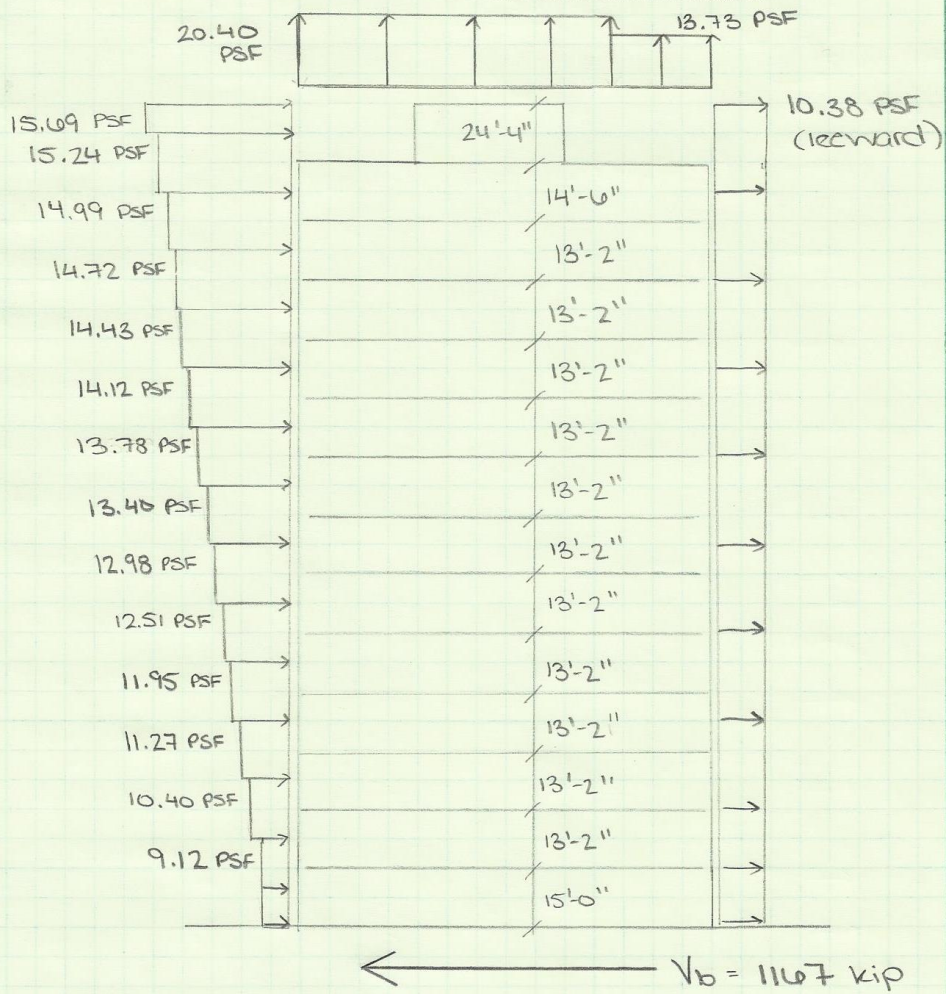 20.40
PSF
13.73 PSF
10.38 PSF
(leeward)
15.69 PSF
15.24 PSF
14.99 PSF
14.72 PSF
14.43 PSF
14.12 PSF
13.78 PSF
13.40 PSF
12.98 PSF
12.51 PSF
11.95 PSF
11.27 PSF
10.40 PSF
9.12 PSF
24'-4"
14'-6"
13'-2"
13'-2"
13'-2"
13'-2"
13'-2"
13'-2"
13'-2"
13'-2"
13'-2"
13'-2"
13'-2"
15'-0"
Vb = 1167 kip